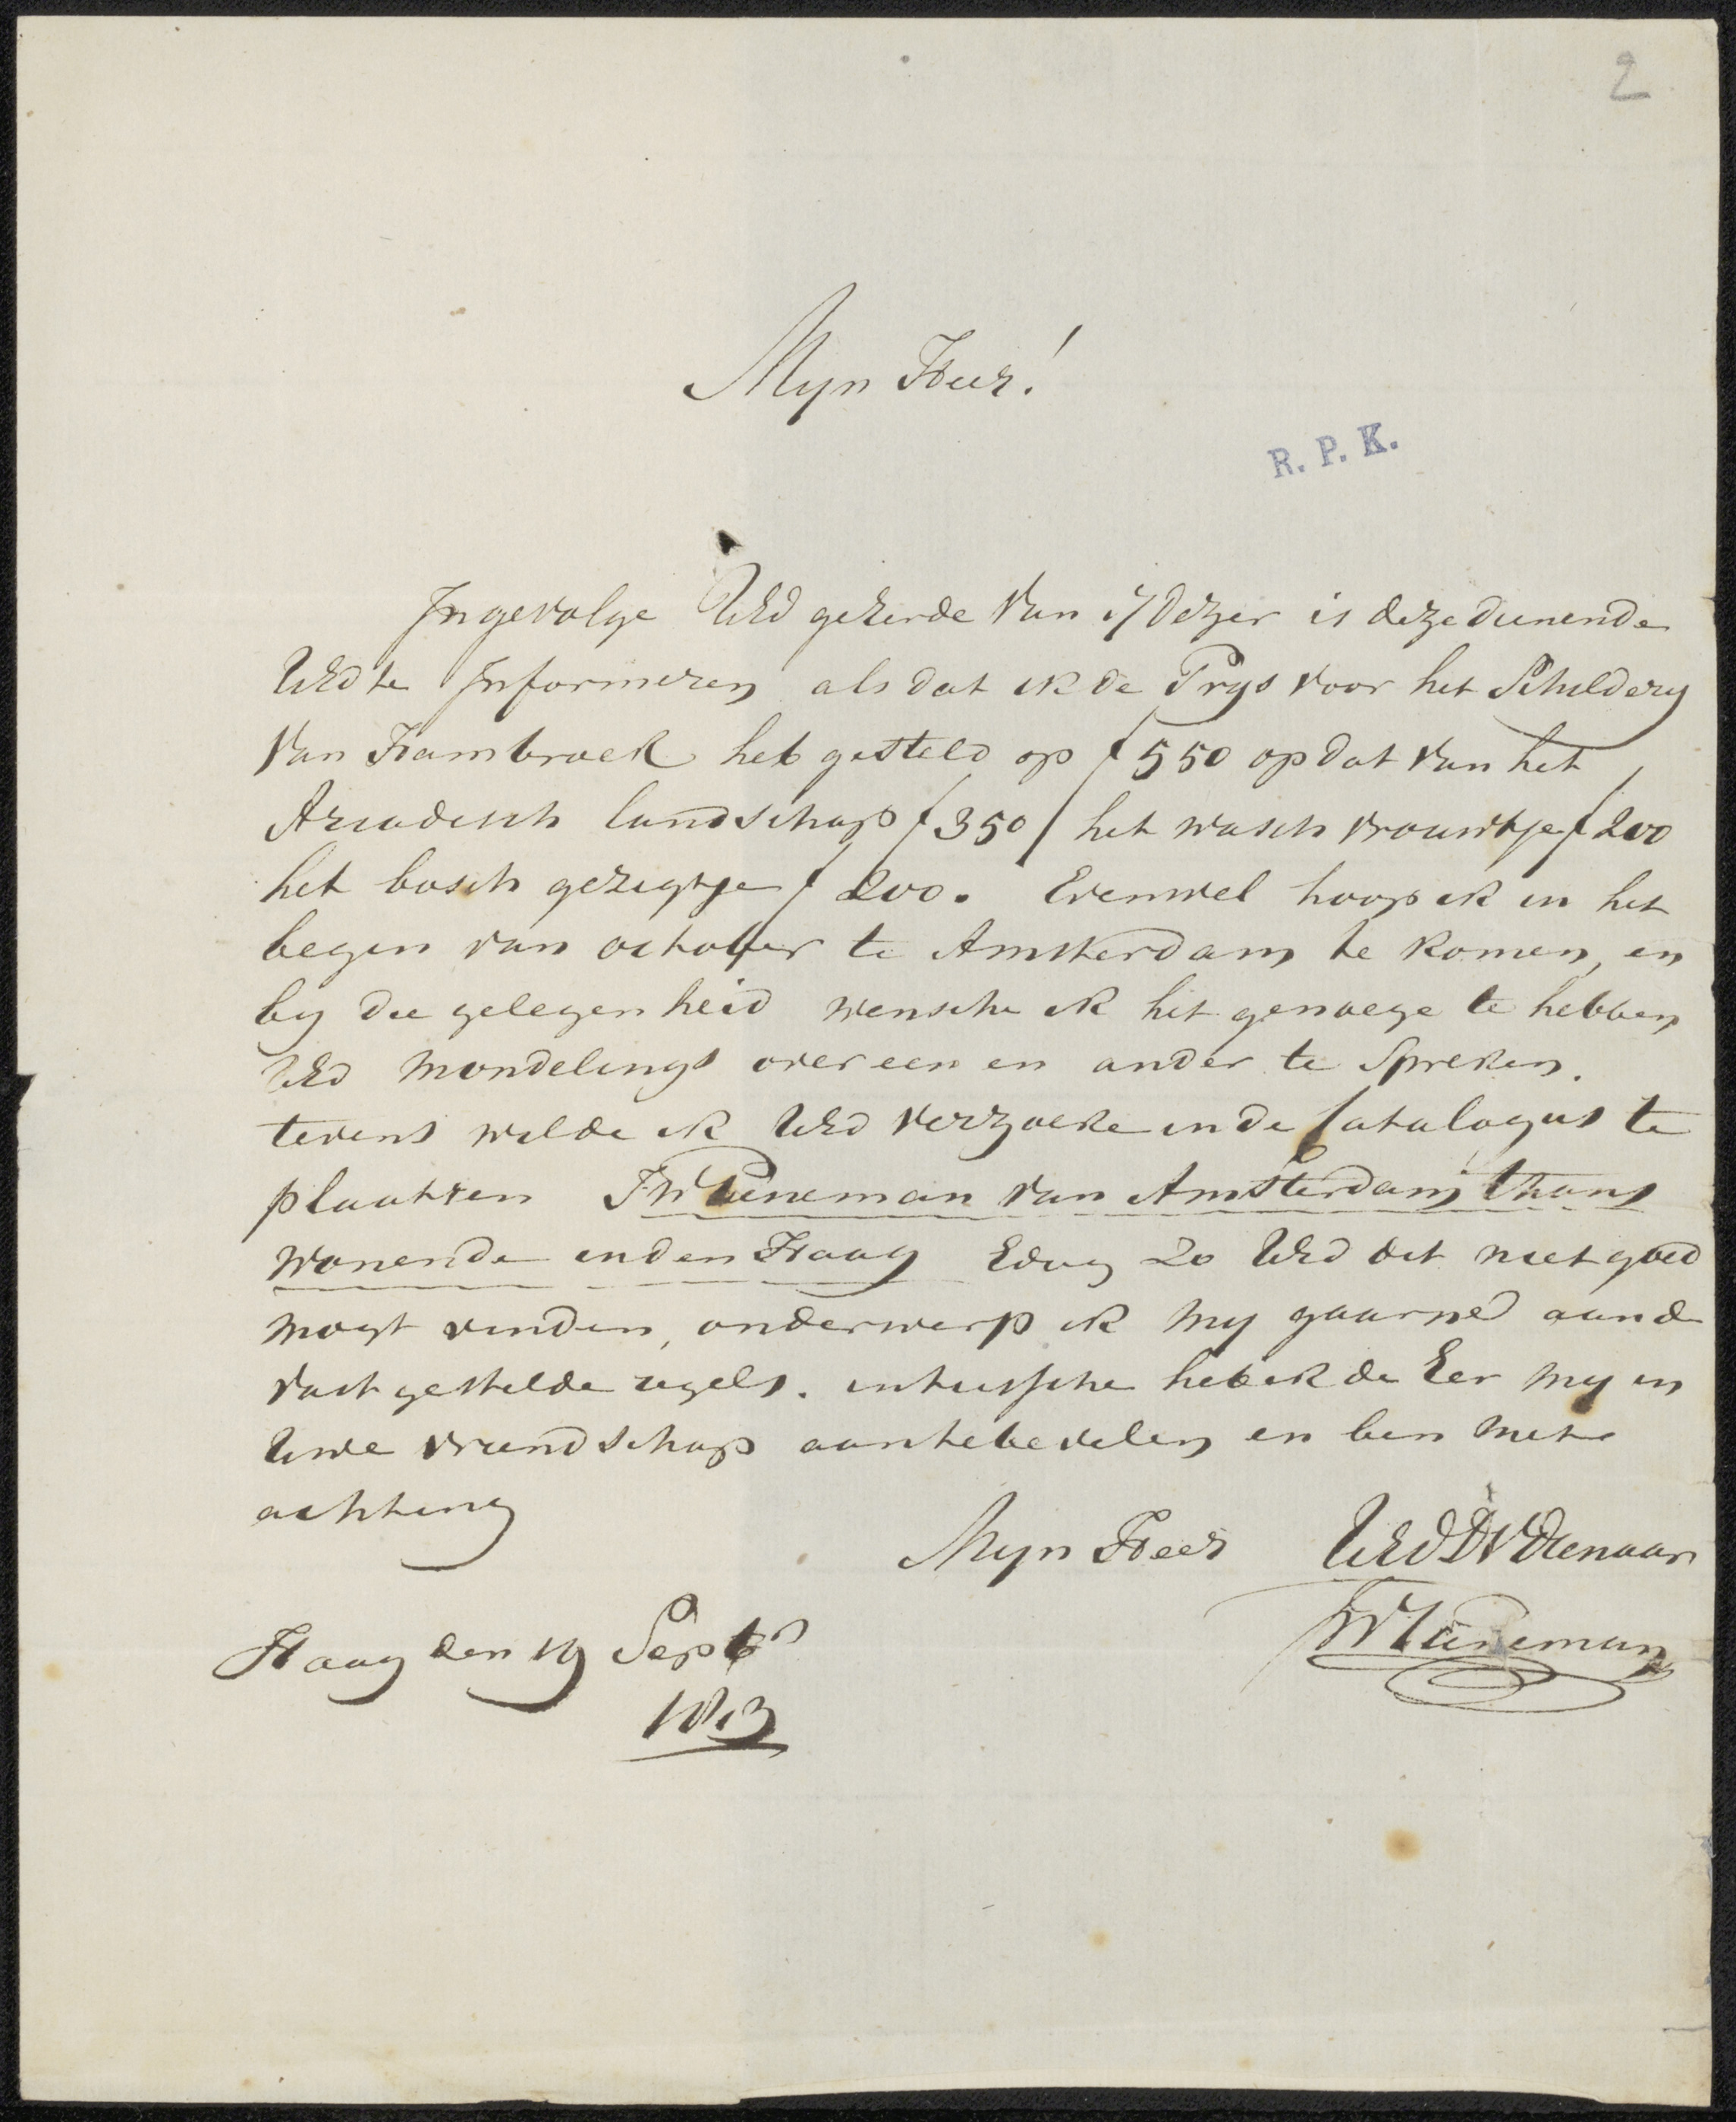 2
Myn Heer!
R. P. K.
Ingevolge UEd geEerde van 17 dezer is deze dienende
UEd te Informeren als dat ik de Prys voor het Schildery
van Hambroek heb gesteld op f 550 op dat van het
Arcadisch landschap f 350 / het wasch vrouwtje f 200
het bosch gezigtje f 200. Evenwel hoop ik in het
begin van october te Amsterdam te komen, en
by die gelegenheid wensche ik het genoege te hebben
UEd mondelings over een en ander te Spreken.
tevens wilde ik UEd verzoeke in de Catalogus te
plaatsen Pieneman van Amsterdam thans
wonende in den Haag Edog zo UEd dit niet goed
mogt vinden, onderwerp ik my gaarne aan de
vast gestelde regels. intussche heb ik de Eer my in
Uwe vriendschap aantebevelen en ben met
achting
Myn Heer UEd DW Dienaar
Pieneman
Haag den 19 Septr
1813